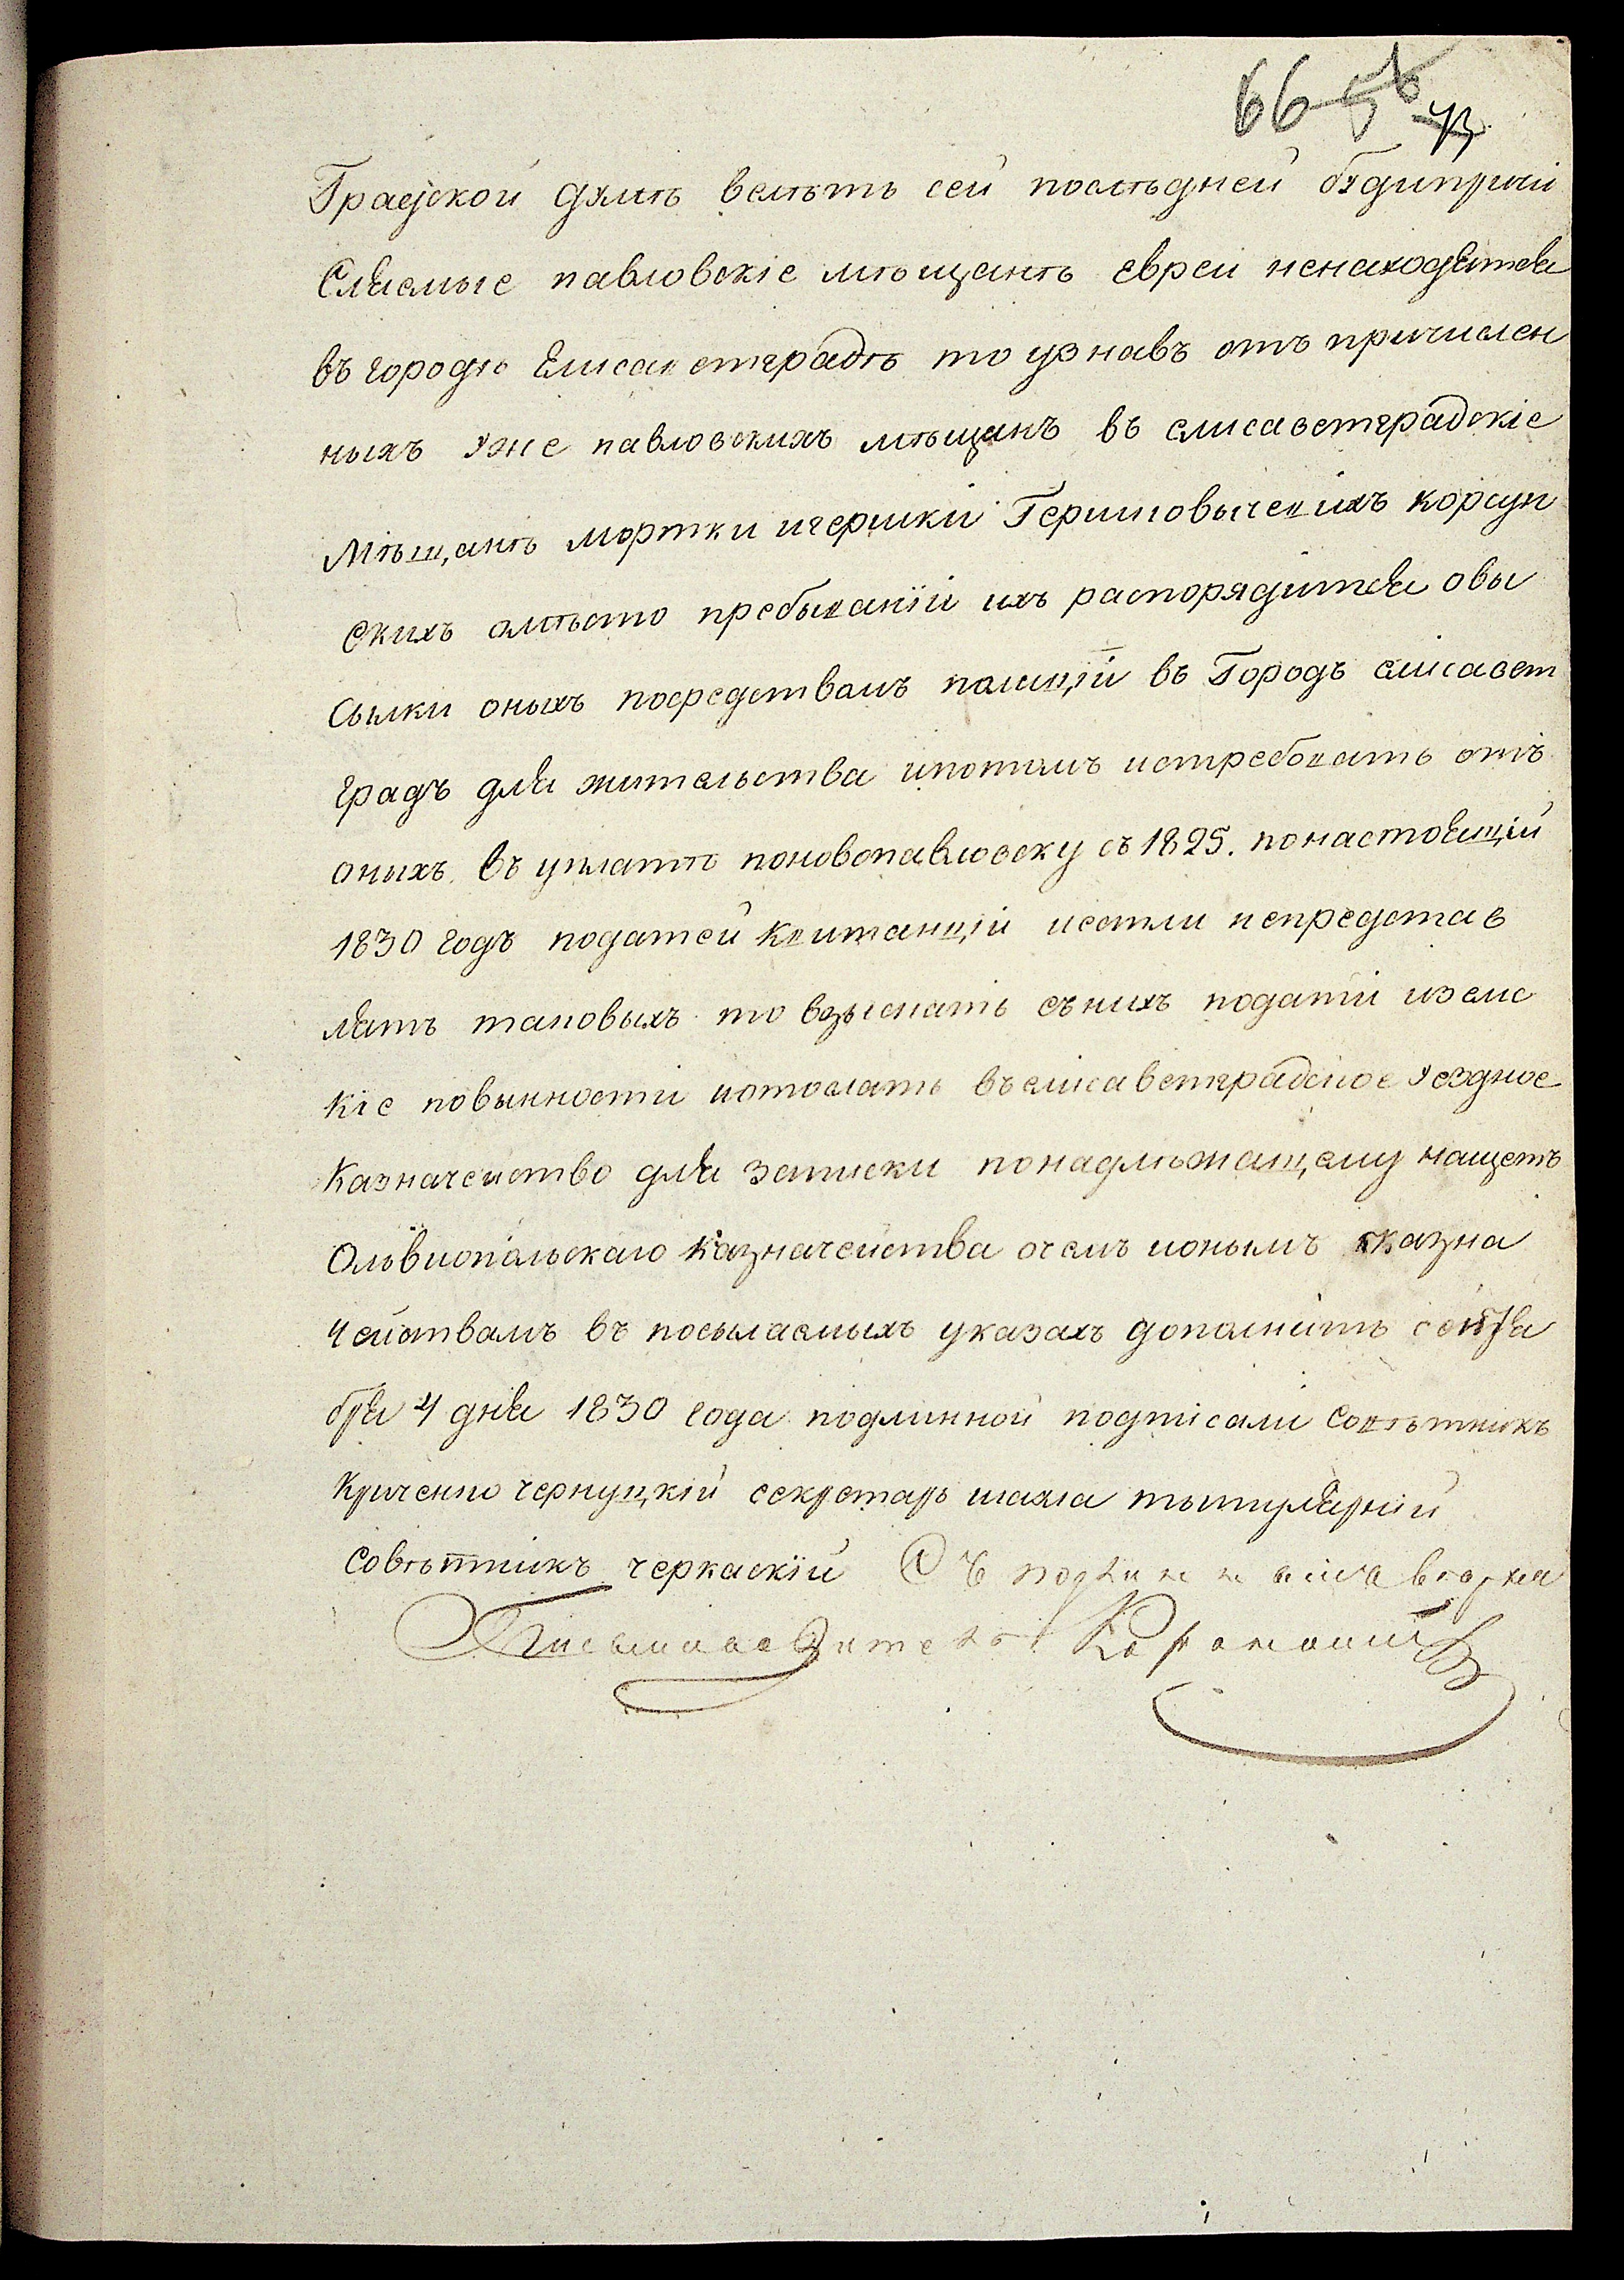 66 56 43
Градской думѣ велѣть сей послѣдней буди причи
Сляемые павловскіе мѣщанѣ евреи ненаходятся
въ городѣ Елисаветградѣ то узнавъ отъ причислен
ныхъ уже павловскихъ мѣщанъ въ елисаветградскіе
Мѣщанѣ мортки игершки Гершовычевихъ корсун
скихъ омѣсто пребываніи ихъ распорядится овы
Сылки оныхъ посредствамъ полиціи въ Городъ елисавет
градъ для жительства ипотомъ истребовать отъ
оныхъ въ уплатѣ поновопавловску съ 1825. понастоящій
1830 годъ податей квитанціи иестли непредстав
лятъ таковыхъ то взыскать сънихъ подати иземс
кіе повынности иотослать въелисаветградское уездное
Казначейство для записки понадлѣжащему нащетъ
Ользіопольскаго казначейства очемъ ионымъ казна
чействамъ въ посылаемыхъ указахъ дополнить сентя
бря 4 дня 1830 года подлинной подписали Совѣтникъ
Криченко чернуцкій секретарь шахла тытулярній
Совѣтникъ черкаскій Съ подлиннымъ вѣрна
Письмоводитель